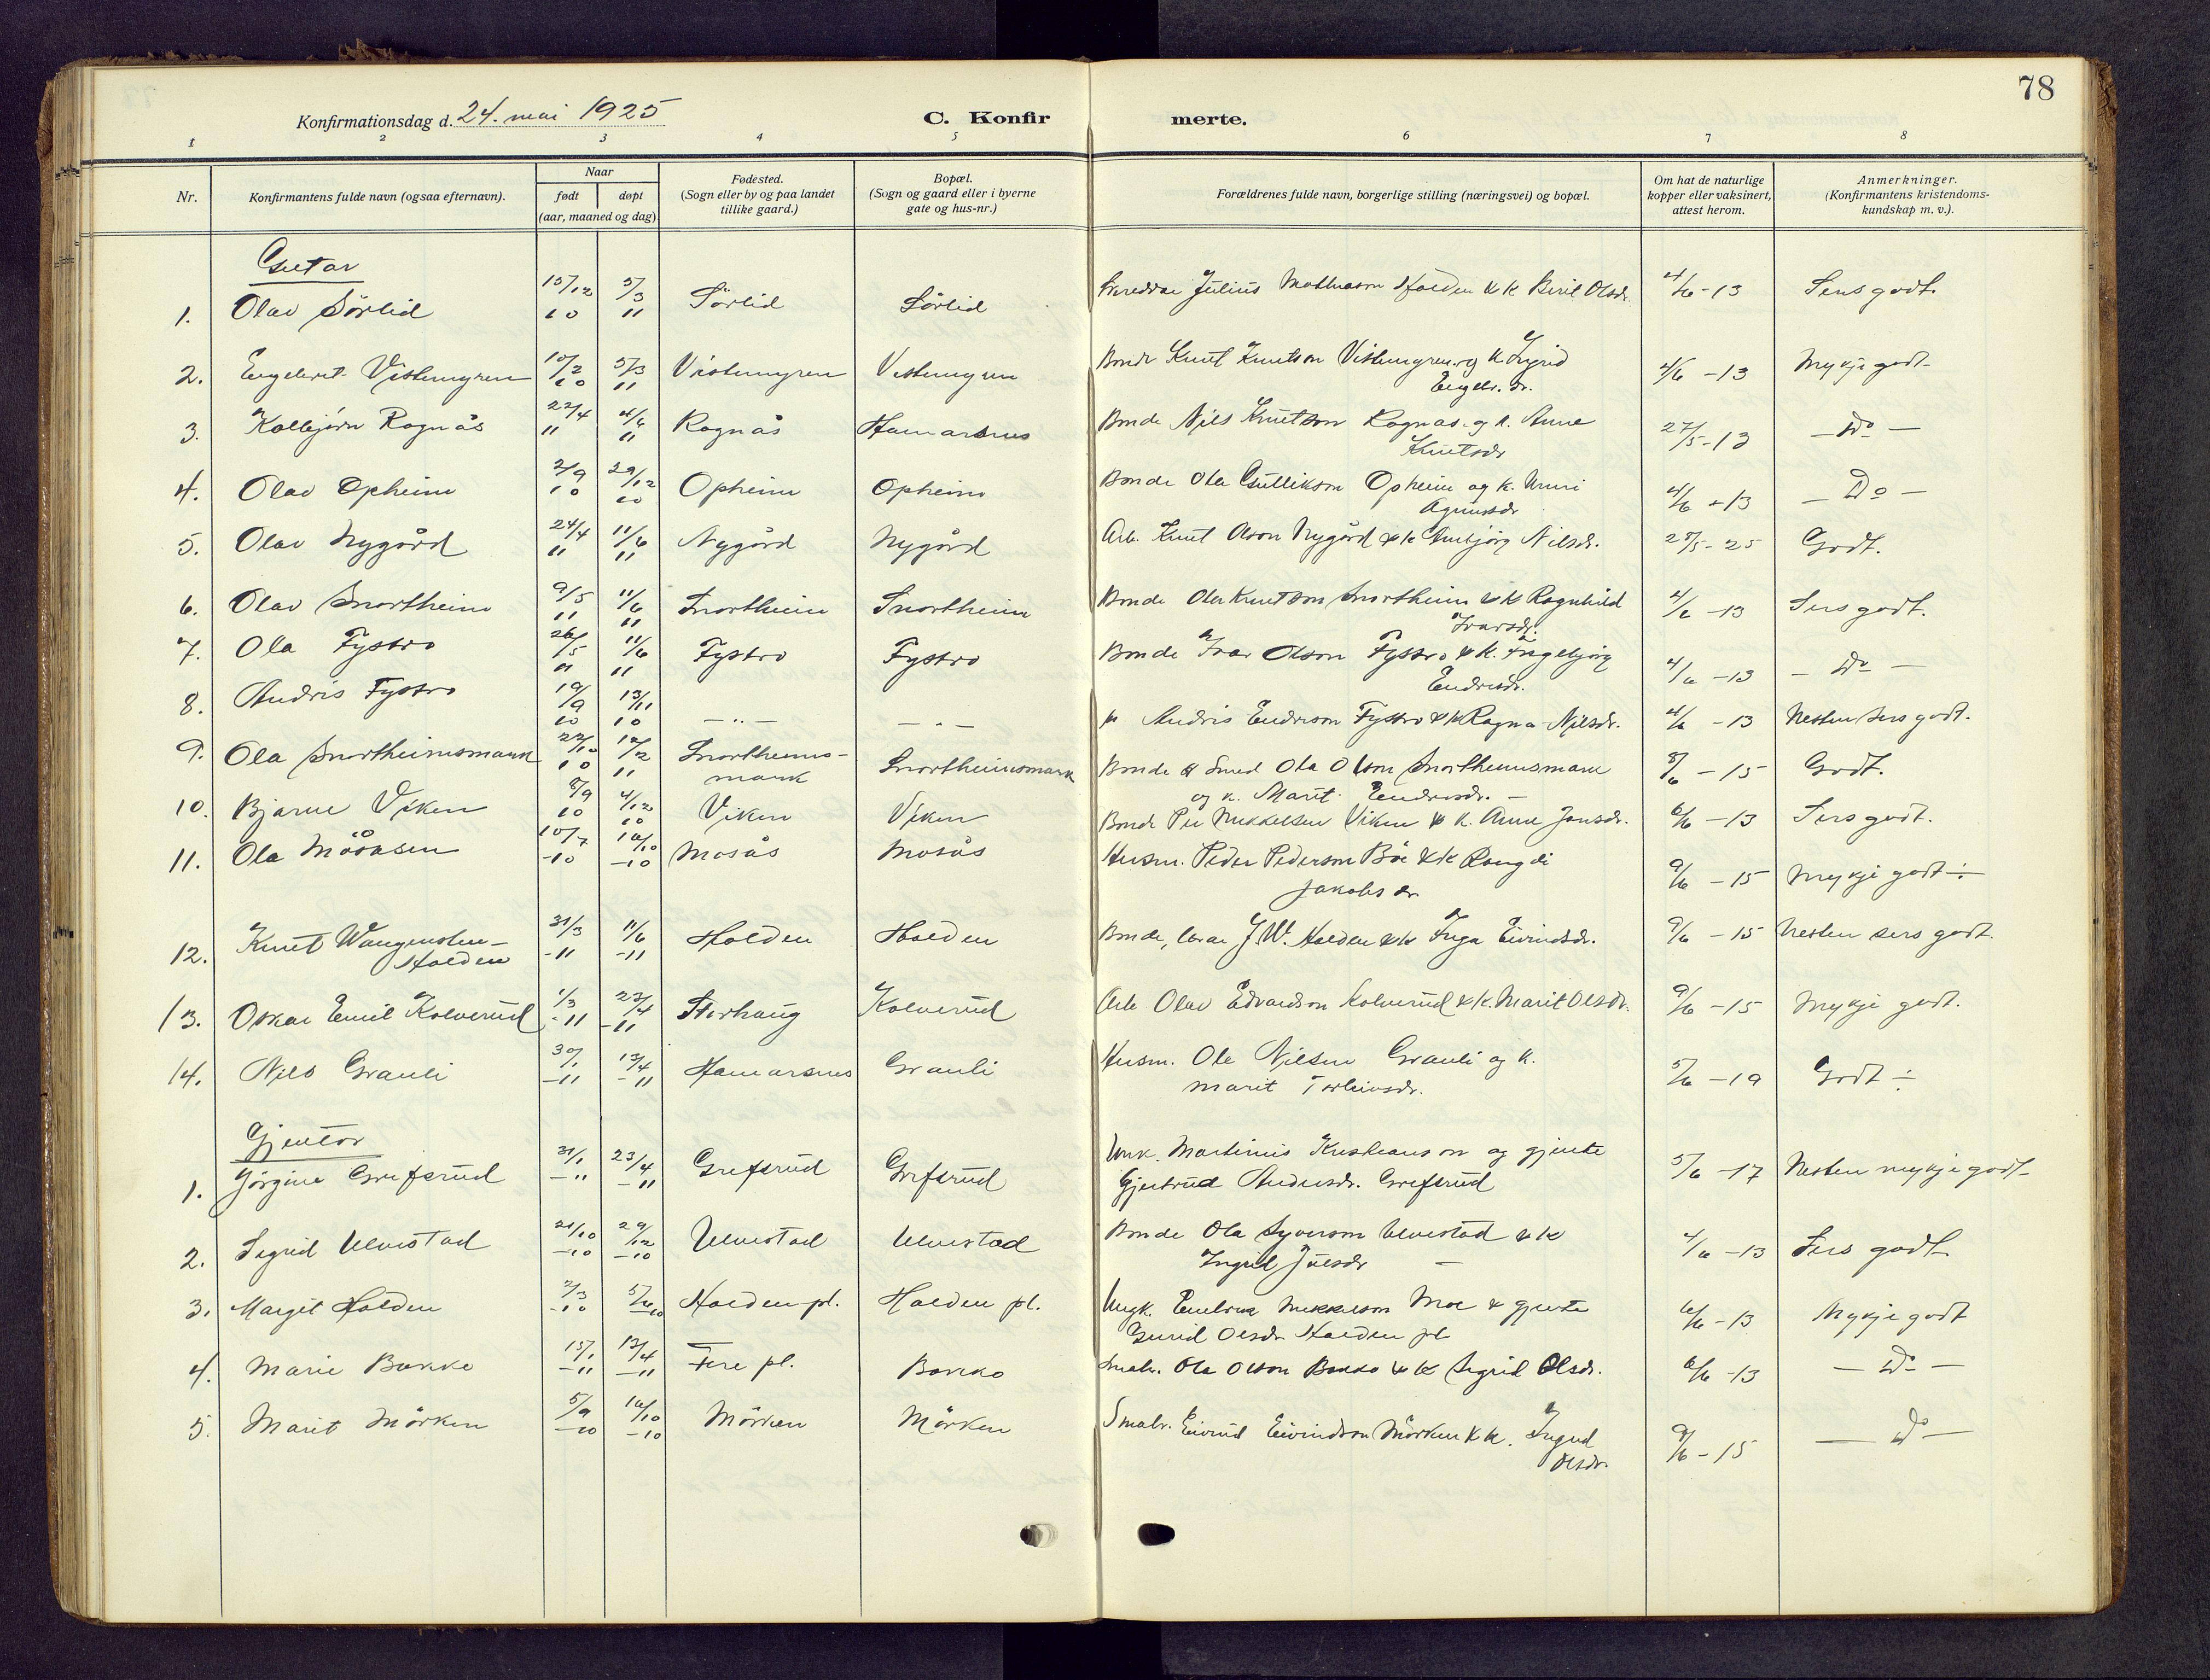 78
Konfirmationsdag d. 24. mai 1925
C. Konfir merte.
1 2 3 4 5 6 7 8
Nr.
Konfirmantens fulde navn (ogsaa efternavn).
Naar
født døpt
(aar, maaned og dag)
Fødested.
(Sogn eller by og paa landet
tillike gaard.)
Bopæl.
(Sogn og gaard eller i byerne
gate og hus-nr.)
Forældrenes fulde navn, borgerlige stilling (næringsvei) og bopæl.
Om hat de naturlige
kopper eller vaksinert,
attest herom.
Anmerkninger.
(Konfirmantens kristendoms-
kundskap m. v.).
Gutar
1. Olav Sörlid 15/12 10 5/3 11 Sörlid Sörlid Julius Holden & k Beril Olsdr. 4/6 -13 Sers godt.
2. Engebret Vestenngren 10/2 10 5/3 11 Vestenngren Vestenngren Bonde Knut Knutson Vestenngren og k. Ingrid
Engebr. dr. 4/6 -13 Mykje godt
3. Kolbjörn Rognås 22/4 11 4/6 11 Rognås Hamarsnes Bonde Nils Knutson Rognas og k. Anne
Knutsdr 27/5 -13 — Do —
4. Olav Opheim 2/9 10 29/12 10 Opheim Opheim Bonde Ola Gulliksen Opheim og k. Unni
4/6 -13 — Do —
5. Olav Nygård 24/4 11 11/6 11 Nygård Nygård Arb. Knut Olson Nygård & k Nilsdr. 25/5 - 25 Godt.
6. Olav Snortheim 9/5 11 11/6 11 Snortheim Snortheim Bonde Ola Knutson Snortheim & k Ragnhild
Ivarsdr. 4/6 -13 Sers godt.
7. Ola Fystro 26/5 11 11/6 11 Fystro Fystro Bonde Ivar Olson Fystro & k. Ingebjörg
Endresdr. 4/6 -13 — Do —
8. Andris Fystro 19/9 10 13/11 10 — " — — " — Andris Endreson Fystro & k Ragna Nilsdr. 4/6 -13 Nesten sers godt.
9. Ola Snortheimsmark 22/10 10 12/2 11 Snortheims-
mark Snortheimsmark Bonde & Smed Ola Olson Snortheimsmark
og k. Marit Endresdr. — 8/6 - 15 Godt.
10. Bjarne Viken 8/9 10 4/12 10 Viken Viken Bonde Per Mikkelsen Viken & k. Anne Jonsdr. 6/6 -13 Sers godt.
11. Ola Moåsen 10/7 -10 16/10 -10 Mosås Mosås Husm. Peder Pederson Böe & k Rangdi
Jakobs dr 9/6 - 15 Mykje godt ÷
12. Knut Wangensten-
Holden 31/3 -11 11/6 -11 Holden Holden Bonde, lærar J. W. Holden & k Inga Eivindsdr. 9/6 - 15 Nesten sers godt.
13. Oskar Emil Kolverud 1/3 -11 23/4 -11 Storhaug Kolverud Arb Olav Edvardson Kolverud & k. Marit Olsdr. 9/6 - 15 Mykje godt.
14. Nils Granli 30/1 -11 13/4 -11 Hamarsnes Granli Husm. Ole Nilsen Granli og k.
Marit Torleivsdr. 5/6 - 19 Godt ÷
Gjentor
1. Jörgine Grefsrud 31/1 - 11 23/4 - 11 Grefsrud Grefsrud Unk. Martinus Kristianson og gjente
Gjertrud Andersdr. Grefsrud 5/6 -17 Nesten mykje godt
2. Sigrid Ulvestad 21/10 -10 29/12 -10 Ulvestad Ulvestad Bonde Ola Syverson Ulvestad & k
Ingrid Julsdr — 4/6 -13 Sers godt
3. Margit Holden 2/3 -10 5/6 -10 Holden pl. Holden pl. Ungk. Mikkelson Moe & gjente
Gurid Olsdr Holden pl 6/6 -13 Mykje godt
4. Marie Bakko 15/1 -11 13/4 -11 Fere pl. Bakko Smabr. Ola Olson Bakko & k Sigrid Olsdr. 6/6 -13 — Do —
5. Marit Mörken 5/9 -10 16/10 -10 Mörken Mörken Smabr. Eivind Eivindson Mörken & k. Ingrid
Olsdr. 9/6 - 15 — Do —